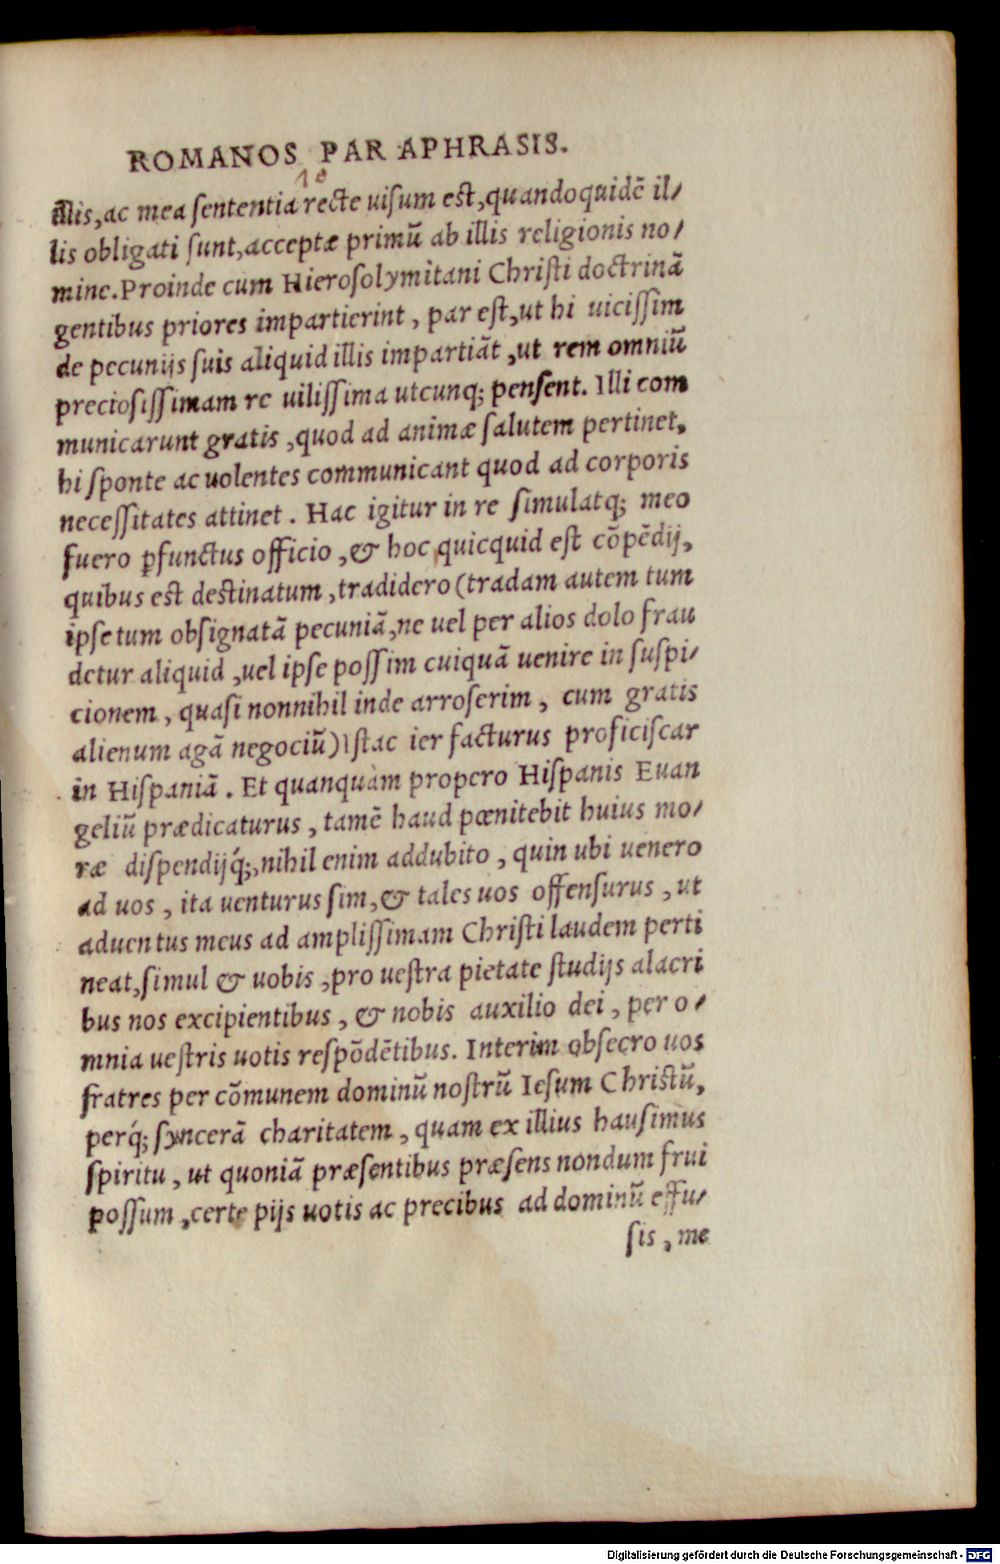 ROMANOS PARAPHRASIS.
10
illis,ac mea sententia recte uisum est,quandoquidē il/
lis obligati sunt,acceptæ primū ab illis religionis no/
mine.Proinde cum Hierosolymitani Christi doctrinā
gentibus priores impartierint, par est,ut hi uicissim
de pecunijs suis aliquid illis impartiāt,ut rem omniū
preciosissimam re uilissima utcunq; pensent. Illi com
municarunt gratis,quod ad animæ salutem pertinet,
hi sponte ac uolentes communicant quod ad corporis
necessitates attinet. Hac igitur in re simulatq; meo
fuero ꝑfunctus officio,& hoc quicquid est cōpēdij,
quibus est destinatum,tradidero(tradam autem tum
ipse tum obsignatā pecuniā,ne uel per alios dolo frau
detur aliquid,uel ipse possim cuiquā uenire in suspi/
cionem, quasi nonnihil inde arroserim, cum gratis
alienum agā negociū)Istac ier facturus proficiscar
in Hispaniā. Et quanquàm propero Hispanis Euan
geliū prædicaturus, tamē haud pœnitebit huius mo/
ræ dispendijq́;,nihil enim addubito, quin ubi uenero
ad uos, ita uenturus sim,& tales uos offensurus, ut
aduentus meus ad amplissimam Christi laudem perti
neat,simul & uobis,pro uestra pietate studijs alacri
bus nos excipientibus, & nobis auxilio dei, per o/
mnia uestris uotis respōdētibus. Interim obsecro uos
fratres per cōmunem dominū nostrū Iesum Christū,
perq́; synceram̄ charitatem, quam ex illius hausimus
spiritu, ut quoniā præsentibus præsens nondum frui
possum,certe pijs uotis ac precibus ad dominū effu/
sis, me
Digitalisierung gefördert durch die Deutsche Forschungsgemeinschaft - DFG